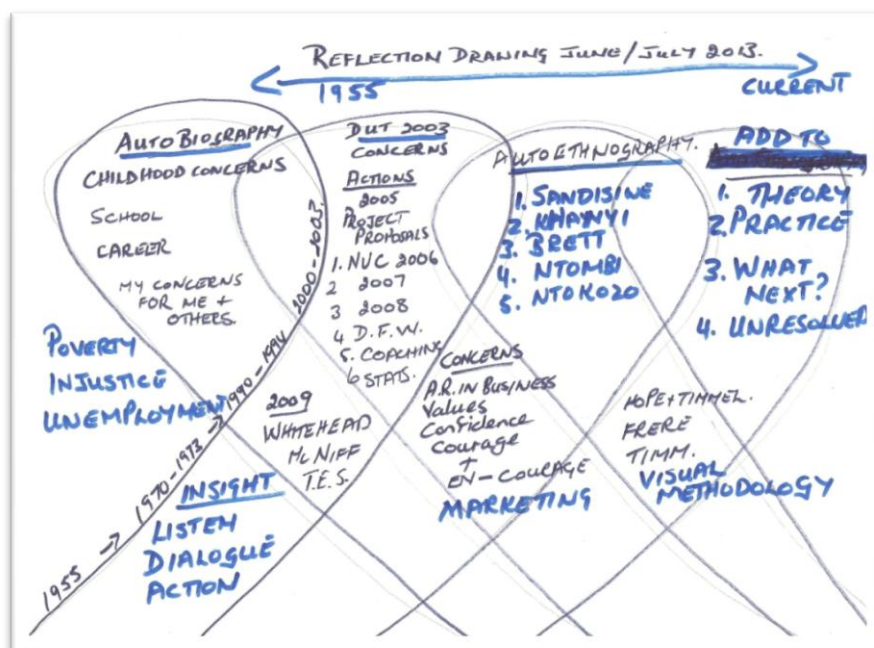 REFLECTION DRAWING JUNE/JULY 2013.
1955
CURRENT
AUTOBIOGRAPHY
CHILDHOOD CONCERNS
SCHOOL
CAREER
MY CONCERNS
FOR ME +
OTHERS.
POVERTY
INJUSTICE
UNEMPLOYMENT
1955 → 1970-1973 → 1990-1994 2000-2003.
INSIGHT
LISTEN
DIALOGUE
ACTION
DUT 2003
CONCERNS
ACTIONS
2005
PROJECT
PROPOSALS
1. NUC 2006
2 2007
3 2008
4 D.F.W.
5. COACHING
6 STATS.
2009
WHITEHEAD
McNIFF
T.E.S.
AUTOETHNOGRAPHY.
1. SANDISINE
2. KHANYI
3. BRETT
4. NTOMBI
5. NTOKOZO
CONCERNS
A.R. IN BUSINESS
Values
Confidence
Courage
+
EN-COURAGE
MARKETING
ADD TO
1. THEORY
2. PRACTICE
3. WHAT
NEXT?
4. UNRESOLVED
HOPE+TIMMEL.
FRERE
TIMM.
VISUAL
METHODOLOGY